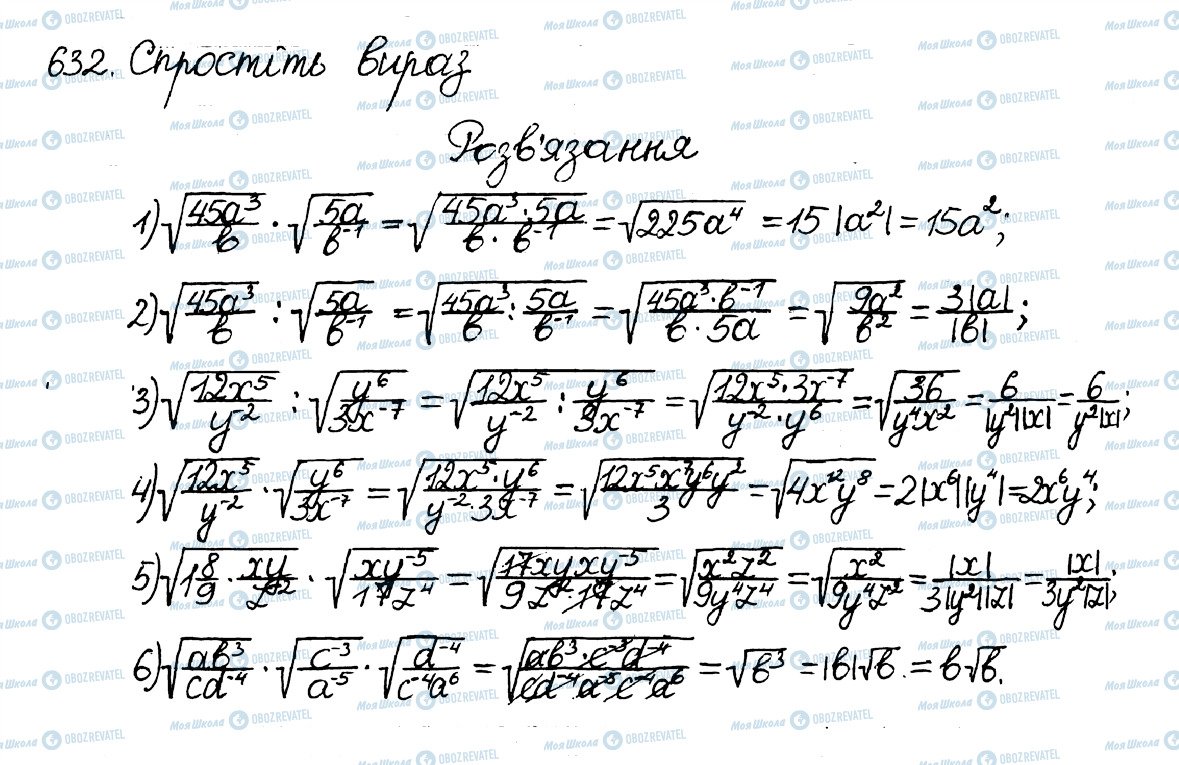 632. Спростіть вираз
Розв'язання
1) √(45a³/b) · √(5a/b⁻¹) = √(45a³·5a/(b·b⁻¹)) = √(225a⁴) = 15|a²| = 15a²;
2) √(45a³/b) : √(5a/b⁻¹) = √(45a³/b : 5a/b⁻¹) = √(45a³·b⁻¹/(b·5a)) = √(9a²/b²) = 3|a|/|b|;
3) √(12x⁵/y⁻²) : √(y⁶/3x⁻⁷) = √(12x⁵/y⁻² : y⁶/3x⁻⁷) = √(12x⁵·3x⁻⁷/(y⁻²·y⁶)) = √(36/y⁴x²) = 6/|y²||x| = 6/y²|x|;
4) √(12x⁵/y⁻²) · √(y⁶/3x⁻⁷) = √(12x⁵·y⁶/(y⁻²·3x⁻⁷)) = √(12x⁵x⁷y⁶y²/3) = √(4x¹²y⁸) = 2|x⁶||y⁴| = 2x⁶y⁴;
5) √(1 8/9 · xy/z⁻²) · √(xy⁻⁵/17z⁴) = √(17xyxy⁻⁵/(9z⁻²·17z⁴)) = √(x²z²/9y⁴z⁴) = √(x²/9y⁴z²) = |x|/3|y²||z| = |x|/3y²|z|;
6) √(ab³/cd⁻⁴) · √(c⁻³/a⁻⁵) · √(d⁻⁴/c⁻⁴a⁶) = √(ab³·c⁻³d⁻⁴/(cd⁻⁴a⁻⁵c⁻⁴a⁶)) = √b³ = |b|√b = b√b.
Моя Школа OBOZREVATEL